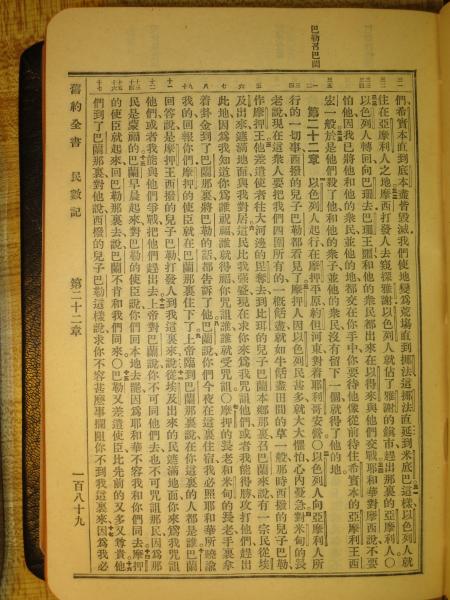 巴勒召巴蘭
們、希實本直到底本盡皆毀滅我們使地變爲荒場直到挪法這挪法直延到米底巴這樣以色列人就
住在亞摩利人之地摩西打發人去窺探雅謝以色列人就佔了雅謝的鎮市趕出那裏的亞摩利人〇
以色列人轉回向巴珊去巴珊王噩和他的衆民都出來在以得來與他們交戰耶和華對摩西說不要
怕他因我已將他和他的衆民並他的地都交在你手中你要待他像從前待住希實本的亞摩利王西
宏一般於是他們殺了他和他的衆子並他的衆民沒有留下一個就得了他的地
第二十二章 以色列人起行在摩押平原約但河東對着耶利哥安營〇以色列人向亞摩利人所
行的一切事西撥的兒子巴勒都看見了摩押人因以色列人民甚多就大大懼怕心內憂急對米甸的長
老說現在這衆人要把我們四圍所有的一概餂盡就如牛餂盡田間的草一般那時西撥的兒子巴勒、
作摩押王他差遣使者往大河邊的毘奪去到比珥的兒子巴蘭本鄉那裏召巴蘭來說有一宗民從埃
及出來遮滿地面與我對居這民比我強盛現在求你來爲我咒詛他們或者我能得勝攻打他們趕出
此地因爲我知道你爲誰祝福誰就得福你咒詛誰誰就受咒詛〇摩押的長老和米甸的長老手裏拿
着卦金到了巴蘭那裏將巴勒的話都告訴了他巴蘭說你們今夜在這裏住宿我必照耶和華所曉諭
我的回報你們摩押的使臣就在巴蘭那裏住下了上帝臨到巴蘭那裏說在你這裏的人都是誰巴蘭
回答說是摩押王西撥的兒子巴勒打發人到我這裏來說從埃及出來的民遮滿地面你來爲我咒詛
他們或者我能與他們爭戰把他們趕出去上帝對巴蘭說你不可同他們去也不可咒詛那民因爲那
民是蒙福的巴蘭早晨起來對巴勒的使臣說你們回本地去罷因爲耶和華不容我和你們同去摩押
的使臣就起來回巴勒那裏去說巴蘭不肯和我們同來〇巴勒又差遣使臣比先前的又多又尊貴他
們到了巴蘭那裏對他說西撥的兒子巴勒這樣說求你不容甚麼事攔阻你不到我這裏來因爲我必
舊約全書 民數記 第二十二章 一百八十九